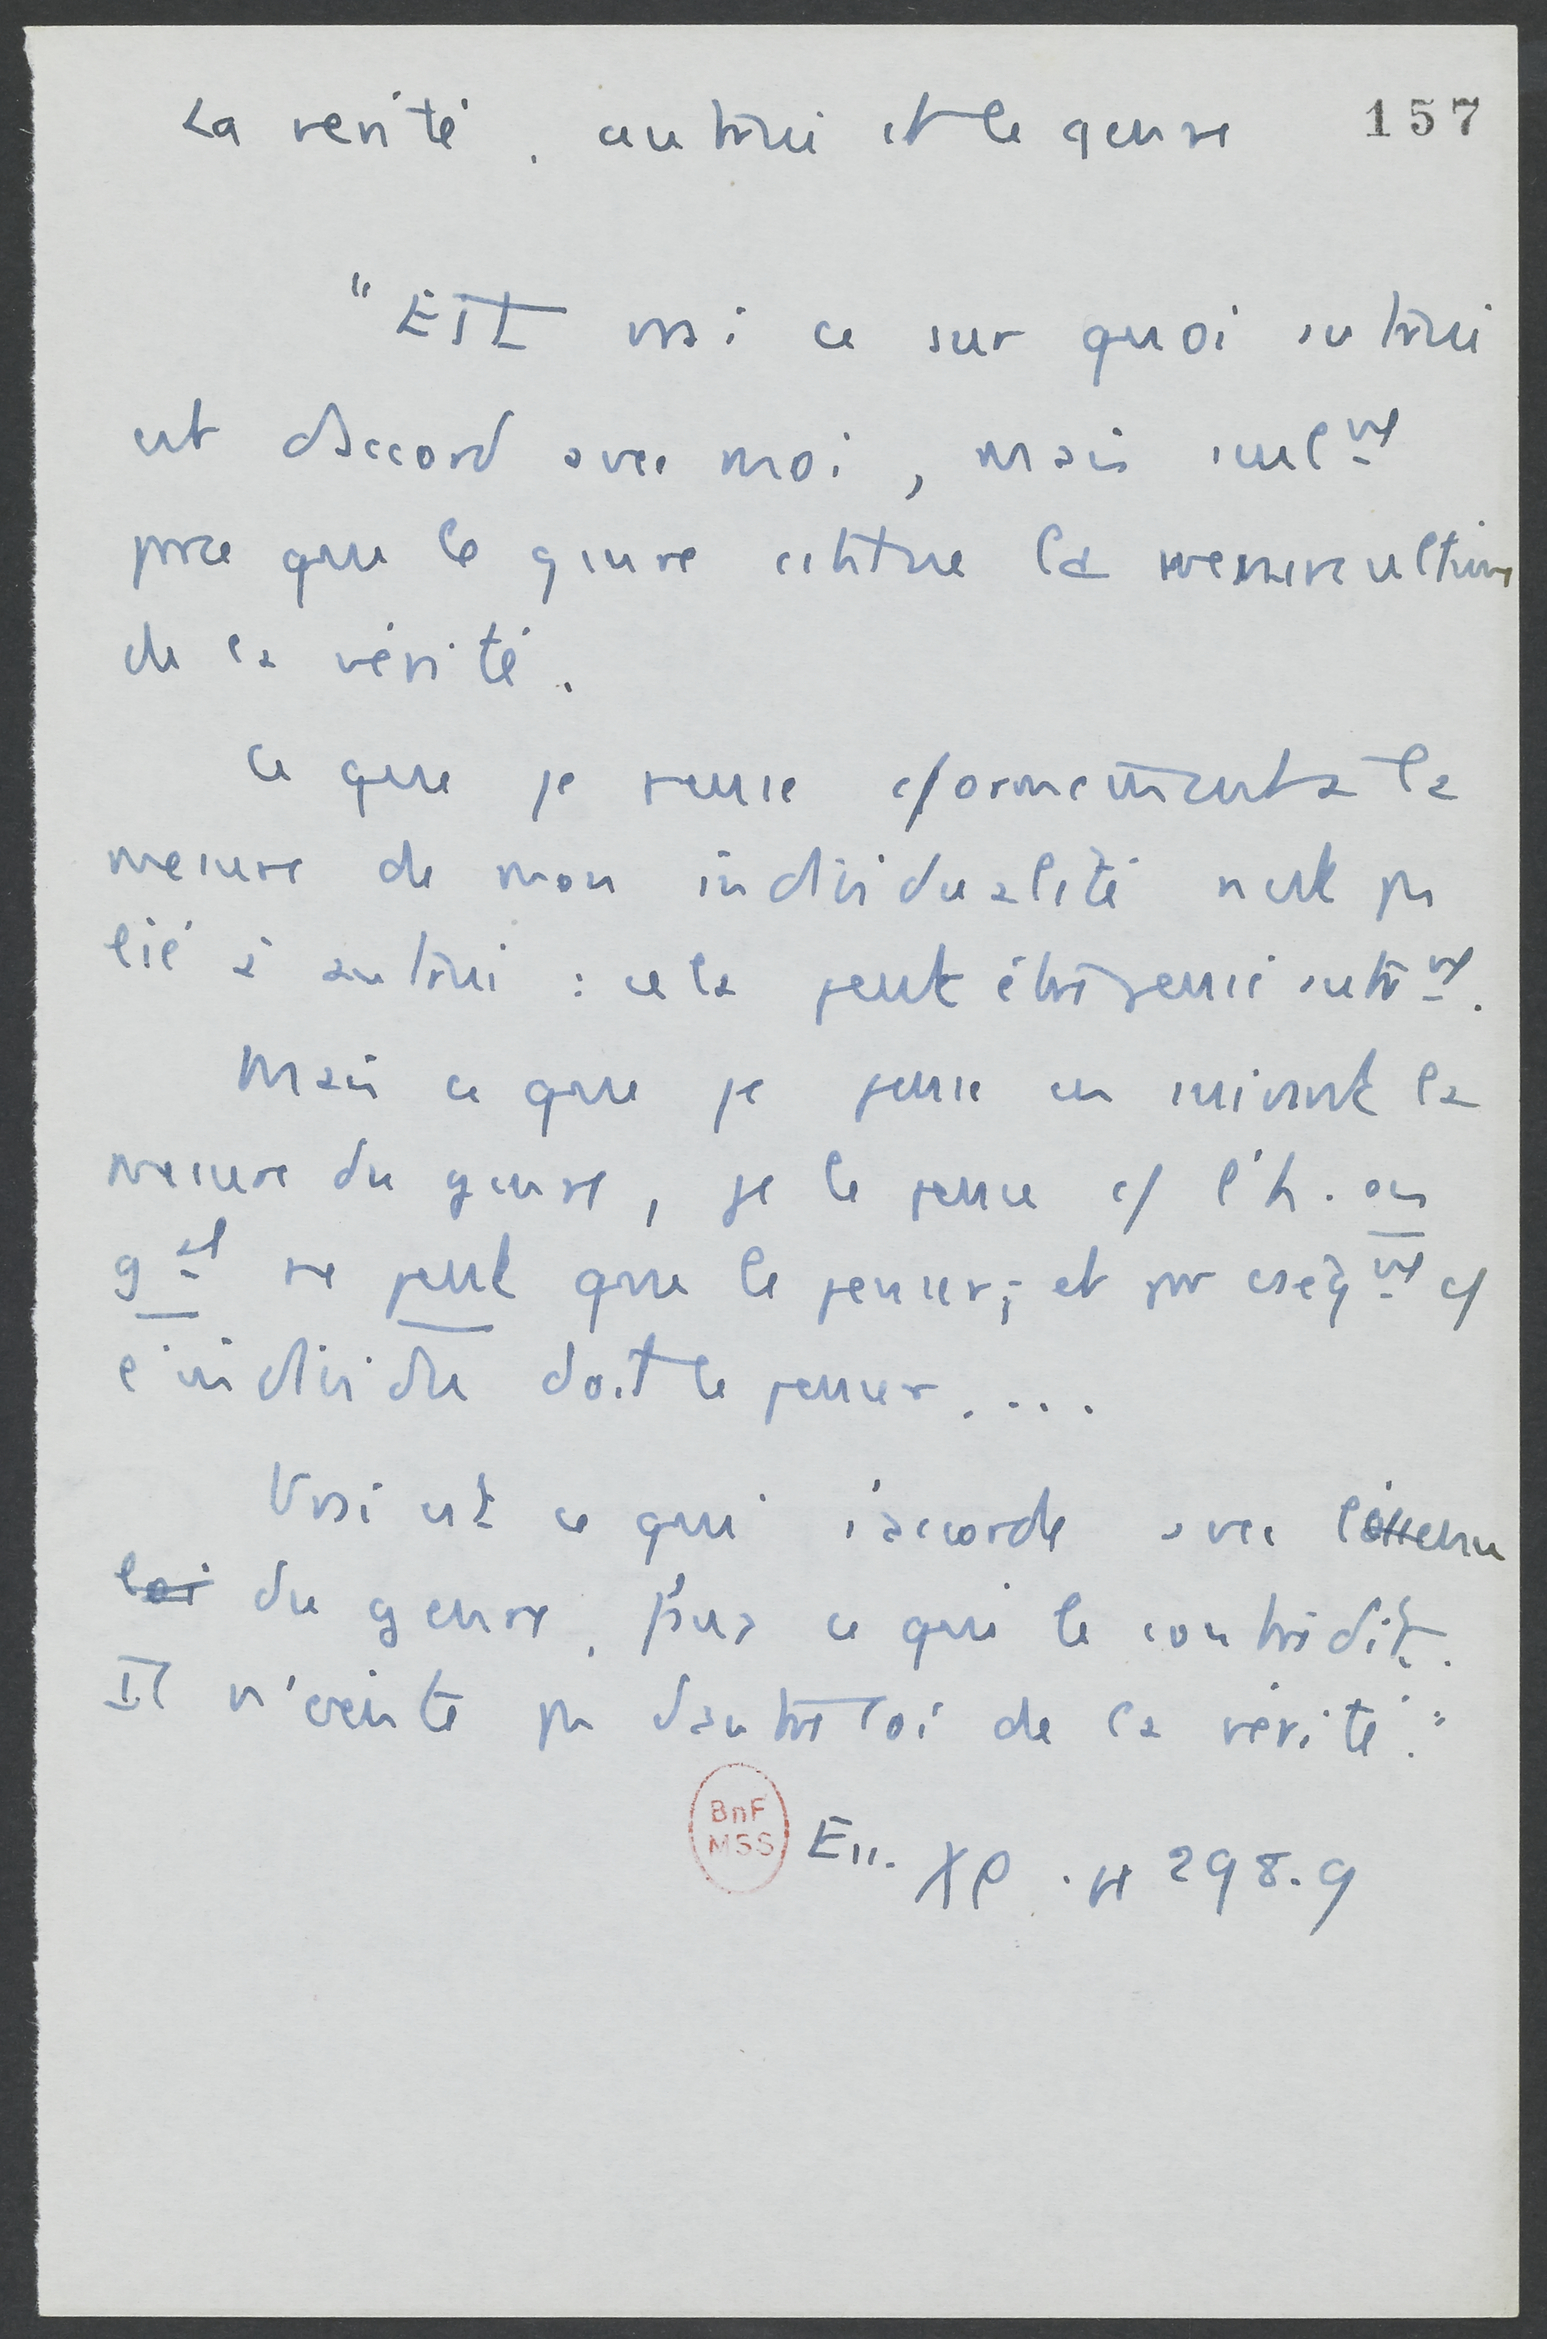 La vérité. autrui et le genre 157
"Est vrai ce sur quoi autrui
est d'accord avec moi, mais seulmt
parce que le genre cstitue la mesure ultime
de la vérité.
Ce que je pense c/ormémenta la
mesure de mon individualité n'est pas
lié à autrui : cela peut être pensé autrmt.
Mais ce que je pense en suivant la
mesure du genre, je le pense c/ l'h. en
gal ne peut que le penser; et par cséqmt c/
l'individu doit le penser....
Vrai est ce qui s'accorde avec l'essence
loi du genre, faux ce qui le contredit.
Il n'existe pas d'autre loi de la vérité."
BnF
MSS
Ess. XP. 298.9